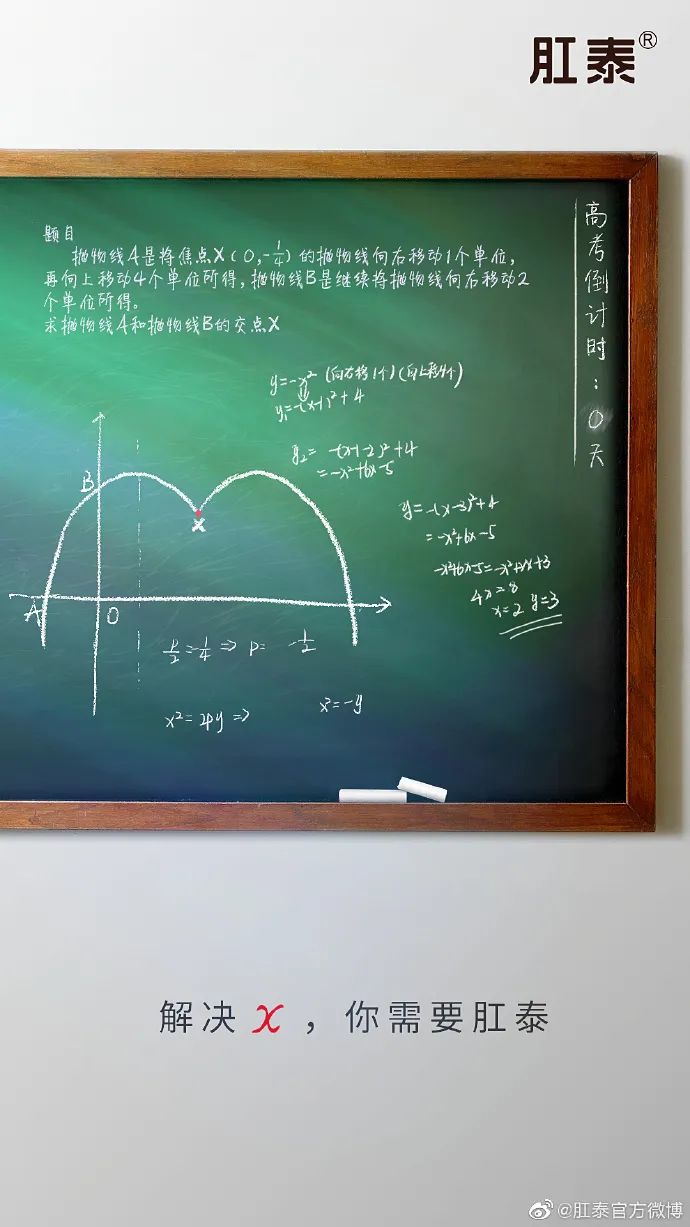 肛泰®
高考倒计时:0天
题目
抛物线A是将焦点X(0,-1/4)的抛物线向右移动1个单位,
再向上移动4个单位所得,抛物线B是继续将抛物线向右移动2
个单位所得。
求抛物线A和抛物线B的交点X
y=-x² (向右移1个)(向上移4个)
y₁=-(x-1)²+4
y₂= -(x-1-2)²+4
=-x²+6x-5
y=-(x-3)²+4
=-x²+6x-5
-x²+6x-5=-x²+2x+3
4x=8
x=2 y=3
B
X
A
O
p/2=-1/4 => p= -1/2
x²=2py => x²=-y
解决x,你需要肛泰
@肛泰官方微博